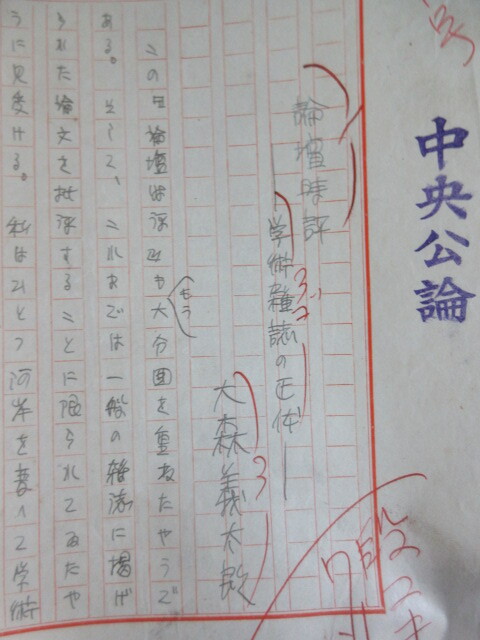 中央公論
論壇時評
―学術雑誌の正体―
大森義太郎
この論壇時評も(もう)大分回を重ねたやうで
ある。そして、これまでは一般の雑誌に掲げ
られた論文を批評することに限られてゐたや
うに見受ける。私はひとつ河岸を変へて学術